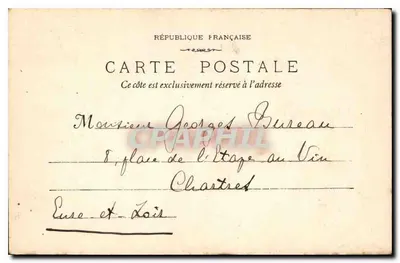 RÉPUBLIQUE FRANÇAISE
CARTE POSTALE
Ce côté est exclusivement réservé à l'adresse
Monsieur Georges Bureau
8, place de l'Etape au Vin
Chartres
Eure-et-Loir